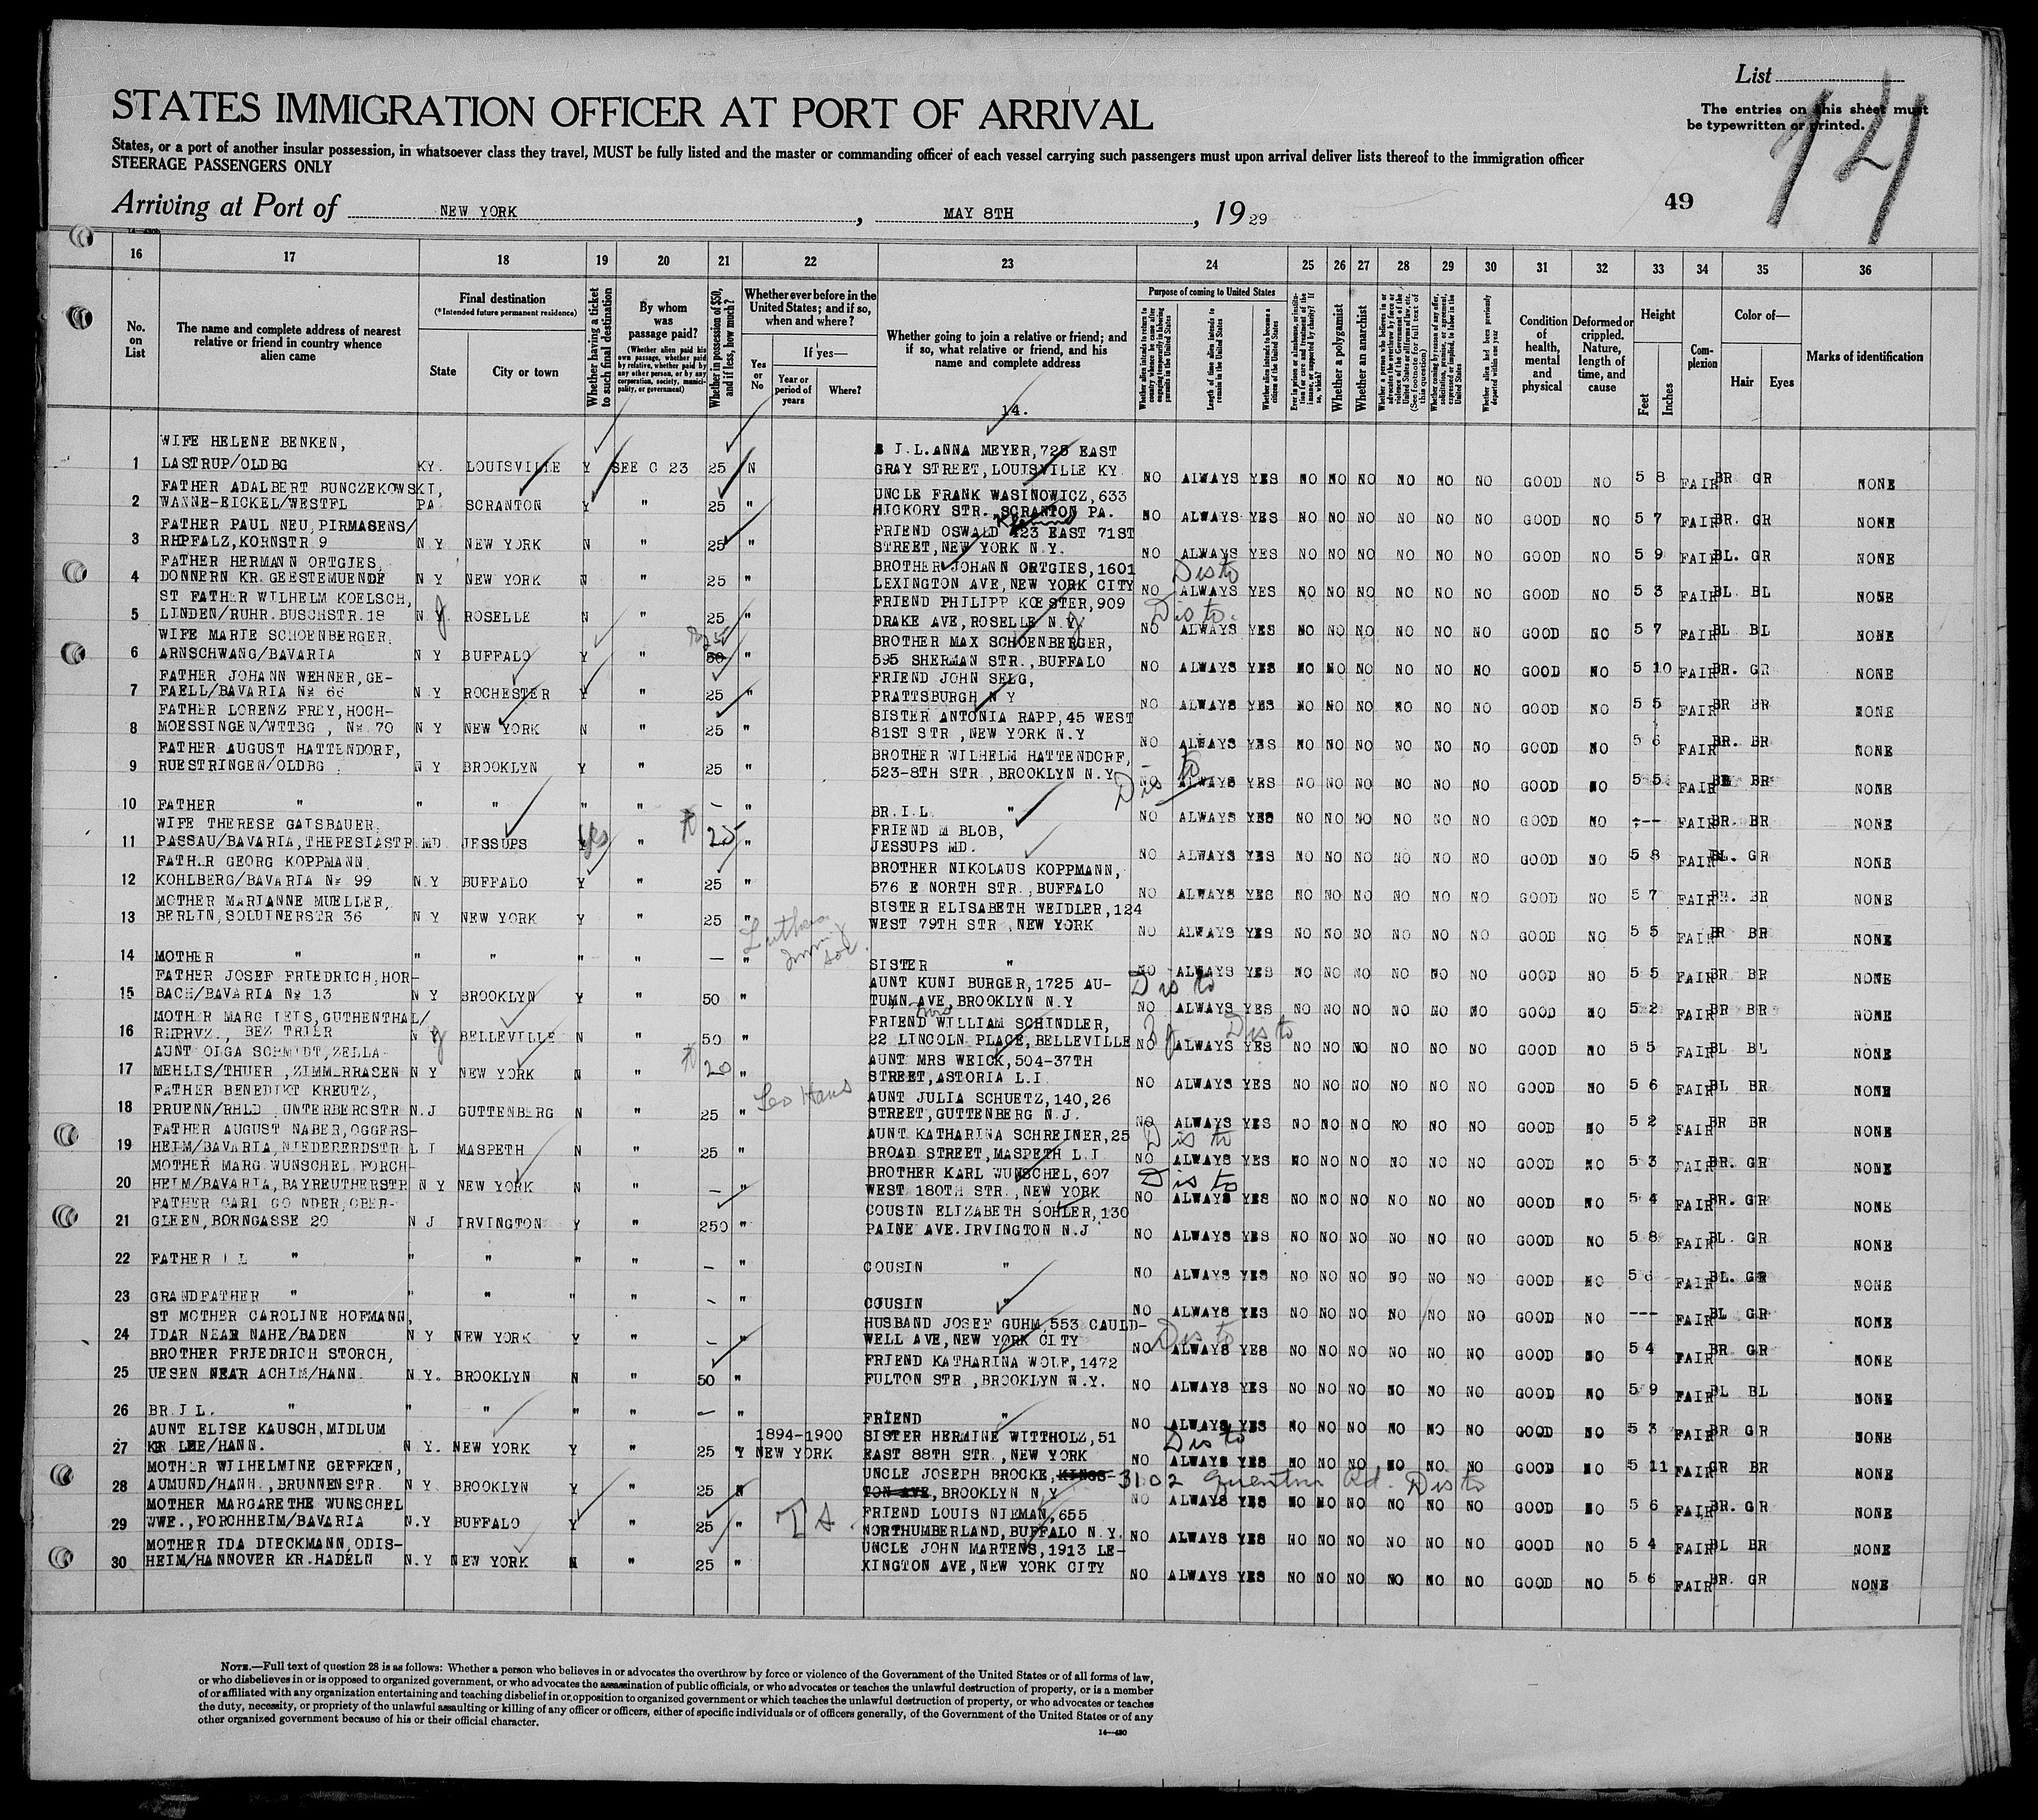 List
STATES IMMIGRATION OFFICER AT PORT OF ARRIVAL
The entries on this sheet must
be typewritten or printed.
14
States, or a port of another insular possession, in whatsoever class they travel, MUST be fully listed and the master or commanding officer of each vessel carrying such passengers must upon arrival deliver lists thereof to the immigration officer
STEERAGE PASSENGERS ONLY
49
Arriving at Port of NEW YORK, MAY 8TH, 19 29
16 17 18 19 20 21 22 23 24 25 26 27 28 29 30 31 32 33 34 35 36
No. on List
The name and complete address of nearest relative or friend in country whence alien came
Final destination
(*Intended future permanent residence)
State
City or town
Whether having a ticket to such final destination
By whom was passage paid?
(Whether alien paid his own passage, whether paid by relative, whether paid by any other person, or by any corporation, society, municipality, or government)
Whether in possession of $50, and if less, how much?
Whether ever before in the United States; and if so, when and where?
Yes or No
If yes—
Year or period of years
Where?
Whether going to join a relative or friend; and if so, what relative or friend, and his name and complete address
14.
Purpose of coming to United States
Length of time alien intends to remain in the United States
Whether alien intends to become a citizen of the United States
Whether a polygamist
Whether an anarchist
Condition of health, mental and physical
Deformed or crippled. Nature, length of time, and cause
Height
Feet
Inches
Complexion
Color of—
Hair
Eyes
Marks of identification
WIFE HELENE BENKEN, J.L.ANNA MEYER,725 EAST
1 LASTRUP/OLDBG KY. LOUISVILLE Y SEE C 23 25 N GRAY STREET,LOUISVILLE KY NO ALWAYS YES NO NO NO NO NO NO GOOD NO 5 8 FAIR BR GR NONE
FATHER ADALBERT BUNCZEKOWSKI, UNCLE FRANK WASINOWICZ,633
2 WANNE-EICKEL/WESTFL PA SCRANTON Y " 25 " HICKORY STR. SCRANTON PA. NO ALWAYS YES NO NO NO NO NO NO GOOD NO 5 7 FAIR BR. GR NONE
FATHER PAUL NEU,PIRMASENS/ FRIEND OSWALD 423 EAST 71ST
3 RHPFALZ,KORNSTR 9 N Y NEW YORK N " 25 " STREET,NEW YORK N.Y. NO ALWAYS YES NO NO NO NO NO NO GOOD NO 5 9 FAIR BL. GR NONE
FATHER HERMANN ORTGIES, BROTHER JOHANN ORTGIES,1601 Dis to
4 DONNERN KR.GEESTEMUENDE N Y NEW YORK N " 25 " LEXINGTON AVE,NEW YORK CITY NO ALWAYS YES NO NO NO NO NO NO GOOD NO 5 3 FAIR BL BL NONE
ST FATHER WILHELM KOELSCH, FRIEND PHILIPP KOESTER,909 Dis to.
5 LINDEN/RUHR.BUSCHSTR.18 N J ROSELLE N " 25 " DRAKE AVE,ROSELLE N.J NO ALWAYS YES NO NO NO NO NO NO GOOD NO 5 7 FAIR BL BL NONE
WIFE MARIE SCHOENBERGER, BROTHER MAX SCHOENBERGER,
6 ARNSCHWANG/BAVARIA N Y BUFFALO Y " 50 " 595 SHERMAN STR.,BUFFALO NO ALWAYS YES NO NO NO NO NO NO GOOD NO 5 10 FAIR BR. GR NONE
FATHER JOHANN WEHNER,GE- FRIEND JOHN SELG,
7 FAELL/BAVARIA Nr 66 N Y ROCHESTER Y " 25 " PRATTSBURGH N Y NO ALWAYS YES NO NO NO NO NO NO GOOD NO 5 5 FAIR BR BR NONE
FATHER LORENZ FREY,HOCH- SISTER ANTONIA RAPP,45 WEST
8 MOESSINGEN/WTTBG , Nr 70 N Y NEW YORK N " 25 " 81ST STR ,NEW YORK N.Y NO ALWAYS YES NO NO NO NO NO NO GOOD NO 5 6 FAIR BR. BR NONE
FATHER AUGUST HATTENDORF, BROTHER WILHELM HATTENDORF,
9 RUESTRINGEN/OLDBG N Y BROOKLYN Y " 25 " 523-8TH STR.,BROOKLYN N.Y Dis to NO ALWAYS YES NO NO NO NO NO NO GOOD NO 5 5 FAIR BR NONE
10 FATHER " " " " " — " BR.I.L. " NO ALWAYS YES NO NO NO NO NO NO GOOD NO --- FAIR BR. BR NONE
WIFE THERESE GAISBAUER, FRIEND M BLOB,
11 PASSAU/BAVARIA,THERESIASTR MD. JESSUPS Yes " 25 " JESSUPS MD. NO ALWAYS YES NO NO NO NO NO NO GOOD NO 5 8 FAIR BL. GR NONE
FATHER GEORG KOPPMANN, BROTHER NIKOLAUS KOPPMANN,
12 KOHLBERG/BAVARIA Nr 99 N Y BUFFALO Y " 25 " 576 E NORTH STR.,BUFFALO NO ALWAYS YES NO NO NO NO NO NO GOOD NO 5 7 FAIR BR. BR NONE
MOTHER MARIANNE MUELLER, SISTER ELISABETH WEIDLER,124
13 BERLIN,SOLDINERSTR 36 N Y NEW YORK Y " 25 " WEST 79TH STR ,NEW YORK NO ALWAYS YES NO NO NO NO NO NO GOOD NO 5 5 FAIR BR BR NONE
14 MOTHER " " " " " — " SISTER " NO ALWAYS YES NO NO NO NO NO NO GOOD NO 5 5 FAIR BR BR NONE
FATHER JOSEF FRIEDRICH,HOR- AUNT KUNI BURGER,1725 AU- Dis to
15 BACH/BAVARIA Nr 13 N Y BROOKLYN Y " 50 " TUMN AVE,BROOKLYN N.Y NO ALWAYS YES NO NO NO NO NO NO GOOD NO 5 2 FAIR BR BR NONE
MOTHER MARG LEIS,GUTHENTHAL/ FRIEND WILLIAM SCHINDLER, Dis to
16 RHPRVZ., BEZ TRIER N J BELLEVILLE N " 50 " 22 LINCOLN PLACE,BELLEVILLE NO ALWAYS YES NO NO NO NO NO NO GOOD NO 5 5 FAIR BL BL NONE
AUNT OLGA SCHMIDT,ZELLA- AUNT MRS WEICK,504-37TH
17 MEHLIS/THUER ,ZIMMERRASEN N Y NEW YORK N " 20 " STREET,ASTORIA L.I NO ALWAYS YES NO NO NO NO NO NO GOOD NO 5 6 FAIR BL BR NONE
FATHER BENEDIKT KREUTZ, AUNT JULIA SCHUETZ,140,26
18 PRUENN/RHLD ,UNTERBERGSTR N.J GUTTENBERG N " 25 " STREET,GUTTENBERG N.J. NO ALWAYS YES NO NO NO NO NO NO GOOD NO 5 2 FAIR BR BR NONE
FATHER AUGUST NABER,OGGERS- AUNT KATHARINA SCHREINER,25 Dis to
19 HEIM/BAVARIA,NIEDERERDSTR L I MASPETH N " 25 " BROAD STREET,MASPETH L.I NO ALWAYS YES NO NO NO NO NO NO GOOD NO 5 3 FAIR BR. GR NONE
MOTHER MARG.WUNSCHEL FORCH- BROTHER KARL WUNSCHEL,607 Dis to
20 HEIM/BAVARIA,BAYREUTHERSTR N Y NEW YORK N " — " WEST 180TH STR.,NEW YORK NO ALWAYS YES NO NO NO NO NO NO GOOD NO 5 4 FAIR BR. GR NONE
FATHER CARL NDER,OBER- COUSIN ELIZABETH SOHLER,130
21 GLEEN,BORNGASSE 20 N J IRVINGTON Y " 250 " PAINE AVE.IRVINGTON N.J NO ALWAYS YES NO NO NO NO NO NO GOOD NO 5 8 FAIR BL. GR NONE
22 FATHER I L " " " " " — " COUSIN " NO ALWAYS YES NO NO NO NO NO NO GOOD NO 5 6 FAIR BL. GR NONE
23 GRANDFATHER " " " " " - " COUSIN " NO ALWAYS YES NO NO NO NO NO NO GOOD NO --- FAIR BL GR NONE
ST MOTHER CAROLINE HOFMANN, HUSBAND JOSEF GUHM 553 CAULD-
24 IDAR NEAR NAHE/BADEN N Y NEW YORK Y " - " WELL AVE,NEW YORK CITY Dis to NO ALWAYS YES NO NO NO NO NO NO GOOD NO 5 4 FAIR BR GR NONE
BROTHER FRIEDRICH STORCH, FRIEND KATHARINA WOLF,1472
25 UESEN NEAR ACHIM/HANN. N.Y. BROOKLYN N " 50 " FULTON STR ,BROOKLYN N.Y. NO ALWAYS YES NO NO NO NO NO NO GOOD NO 5 9 FAIR BL BL NONE
26 BR.I L. " " " " " — " FRIEND " NO ALWAYS YES NO NO NO NO NO NO GOOD NO 5 3 FAIR BR GR NONE
AUNT ELISE KAUSCH,MIDLUM 1894-1900 SISTER HERMINE WITTHOLZ,51 Dis to
27 KR LEE/HANN. N Y. NEW YORK Y " 25 Y NEW YORK EAST 88TH STR.,NEW YORK NO ALWAYS YES NO NO NO NO NO NO GOOD NO 5 11 FAIR GR BR NONE
MOTHER WILHELMINE GEFFKEN, UNCLE JOSEPH BROCKE,KINGS- 3102 Quentin Rd. Dis to
28 AUMUND/HANN.,BRUNNENSTR N Y BROOKLYN Y " 25 N TON AVE,BROOKLYN N.Y NO ALWAYS YES NO NO NO NO NO NO GOOD NO 5 6 FAIR BR. GR NONE
MOTHER MARGARETHE WUNSCHEL FRIEND LOUIS NIEMAN,655
29 WWE.,FORCHHEIM/BAVARIA N.Y BUFFALO Y " 25 " NORTHUMBERLAND,BUFFALO N.Y. NO ALWAYS YES NO NO NO NO NO NO GOOD NO 5 4 FAIR BL BR NONE
MOTHER IDA DIECKMANN,ODIS- UNCLE JOHN MARTENS,1913 LE-
30 HEIM/HANNOVER KR.HADELN N.Y NEW YORK N " 25 " XINGTON AVE,NEW YORK CITY NO ALWAYS YES NO NO NO NO NO NO GOOD NO 5 6 FAIR BR. GR NONE
NOTE.—Full text of question 28 is as follows: Whether a person who believes in or advocates the overthrow by force or violence of the Government of the United States or of all forms of law,
or who disbelieves in or is opposed to organized government, or who advocates the assassination of public officials, or who advocates or teaches the unlawful destruction of property, or is a member
of or affiliated with any organization entertaining and teaching disbelief in or opposition to organized government or which teaches the unlawful destruction of property, or who advocates or teaches
the duty, necessity, or propriety of the unlawful assaulting or killing of any officer or officers, either of specific individuals or of officers generally, of the Government of the United States or of any
other organized government because of his or their official character.
14—430